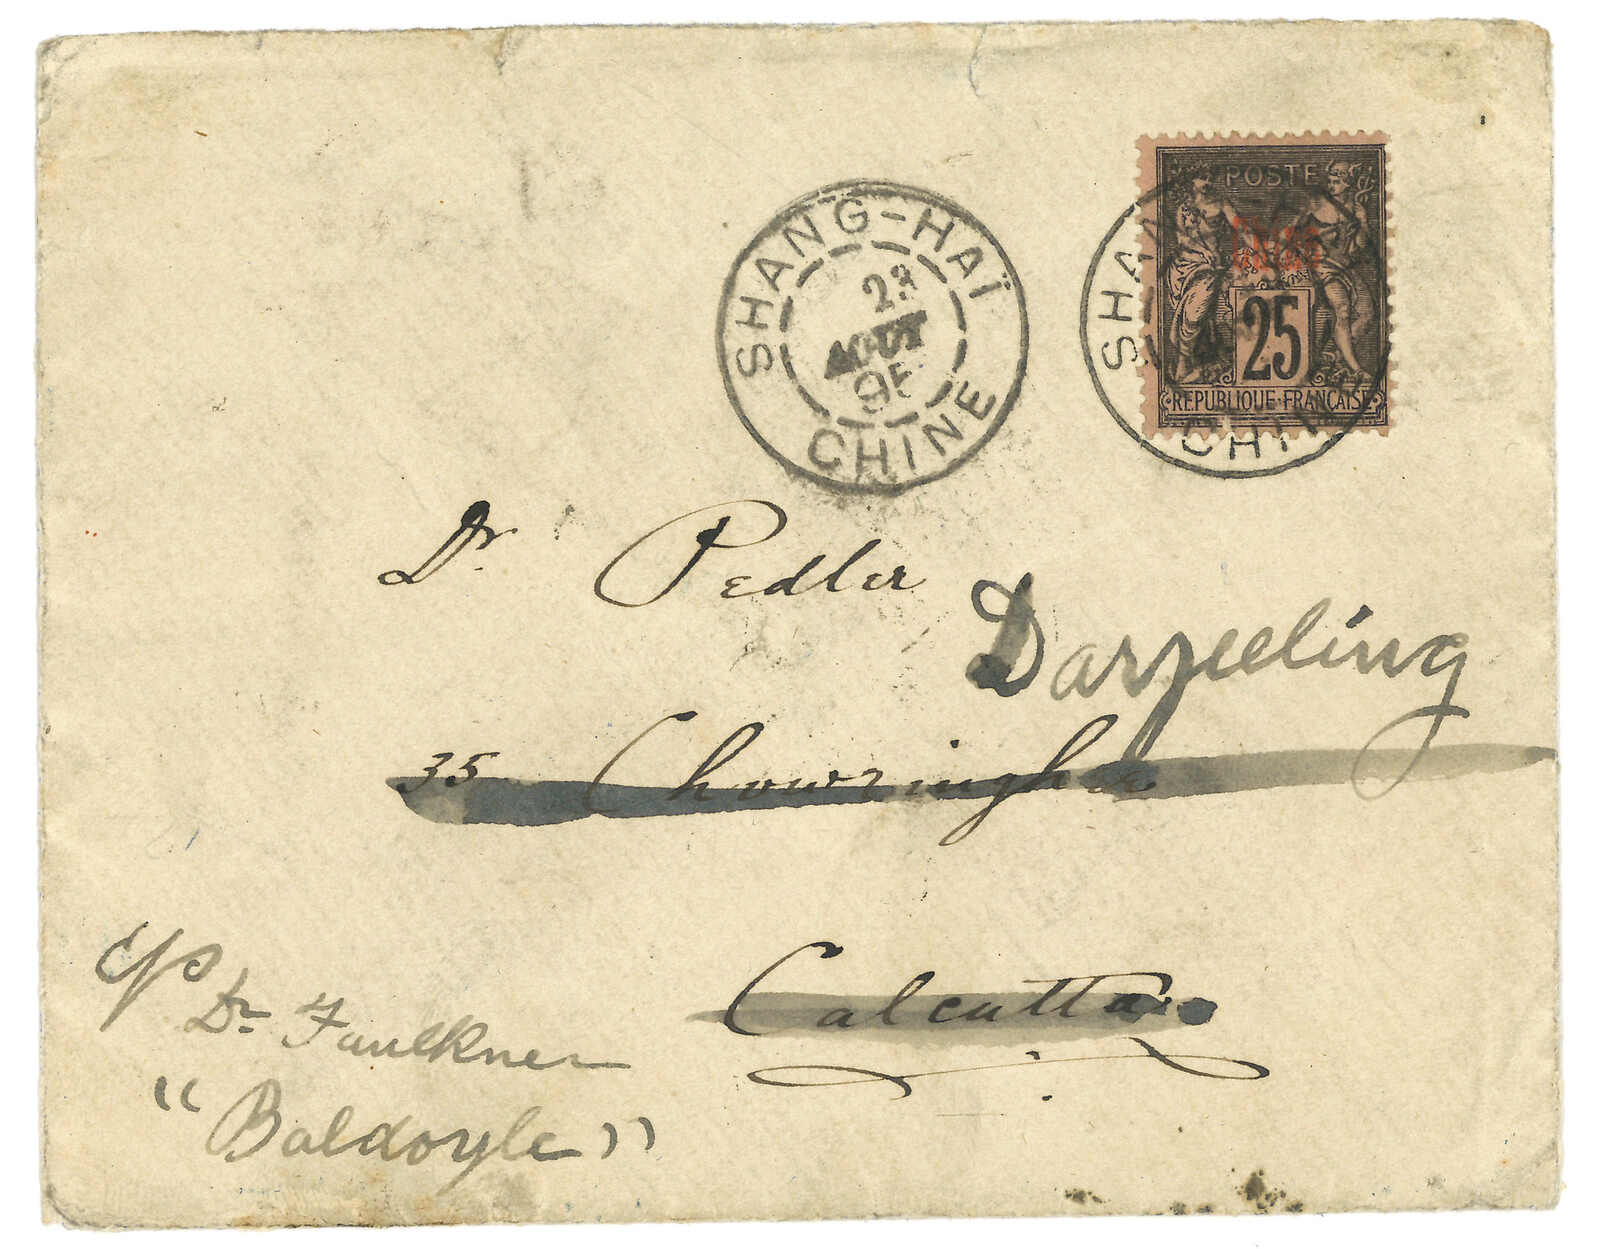 SHANG-HAÏ
23
AOUT
95
CHINE
POSTE
Chine
25
REPUBLIQUE FRANÇAISE
SHAN
CHINE
Dr. Pedler
Darjeeling
35 Chowringhee
Calcutta
c/o
Dr Faulkner
"Baldoyle"